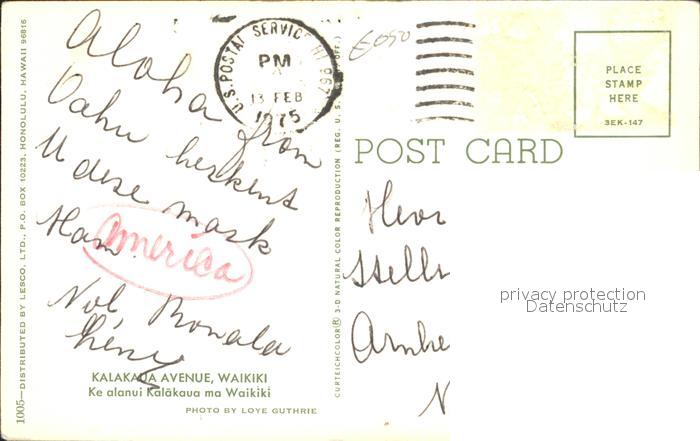 Aloha from
Oahu herkent
U deze mark
Ham.
America
1005—DISTRIBUTED BY LESCO, LTD., P.O. BOX 10223, HONOLULU, HAWAII 96816
KALAKAUA AVENUE, WAIKIKI
Ke alanui Kalākaua ma Waikiki
PHOTO BY LOYE GUTHRIE
U.S. POSTAL SERVICE HI 967
PM
13 FEB
1975
6050
CURTEICHCOLOR® 3-D NATURAL COLOR REPRODUCTION (REG. U.S.
OFF.)
PLACE
STAMP
HERE
3EK-147
POST CARD
privacy protection
Datenschutz